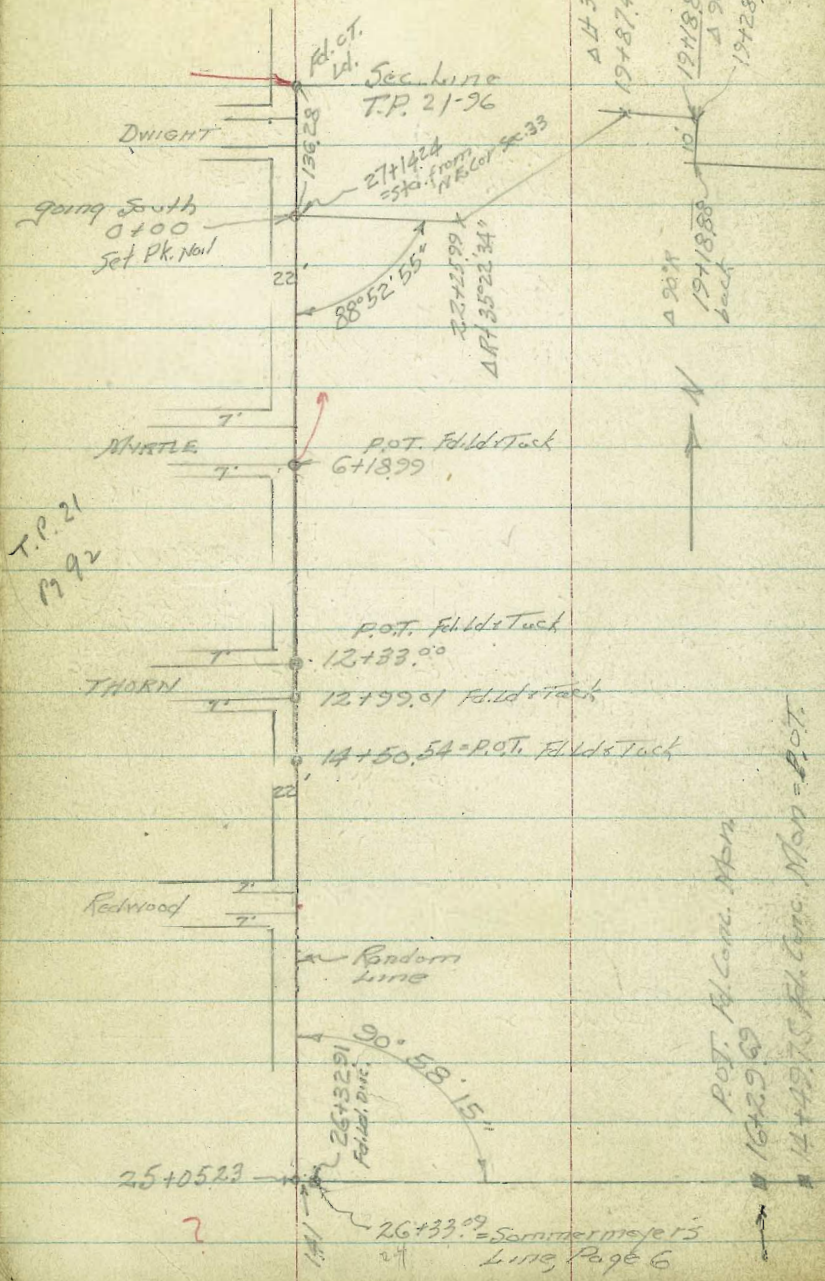 Fd. OT.
Ld.
Sec. Line
T.P. 21-96
DWIGHT
136.28
27+14.24
=Sta. from
N.E. Cor Sec. 33
going South
0+00
Set Pk. Nail
22'
88°52'55"
22+25.99
Δ Rt 35°22'34"
19+87.4
19+18.8
19+28
10'
19+18.88
back
Δ 90° R
N
7'
MYRTLE
7'
P.O.T. Fd. Ld & Tack
6+18.99
T.P. 21
Pg 92
P.O.T. Fd. Ld & Tack
7'
12+33.00
THORN
7'
12+99.01 Fd. Ld & Tack
14+50.54=P.O.T. Fd Ld & Tack
22'
7'
Redwood
7'
Random
Line
90° 58' 15"
26+32.91
Fd. Ld. Disc.
25+05.23
?
1.41
26+33.09 =Sommermeyer's
27
Line, Page 6
P.O.T. Fd. Conc. Mon.
16+29.69
14+49.75 Fd. Conc. Mon = P.O.T.